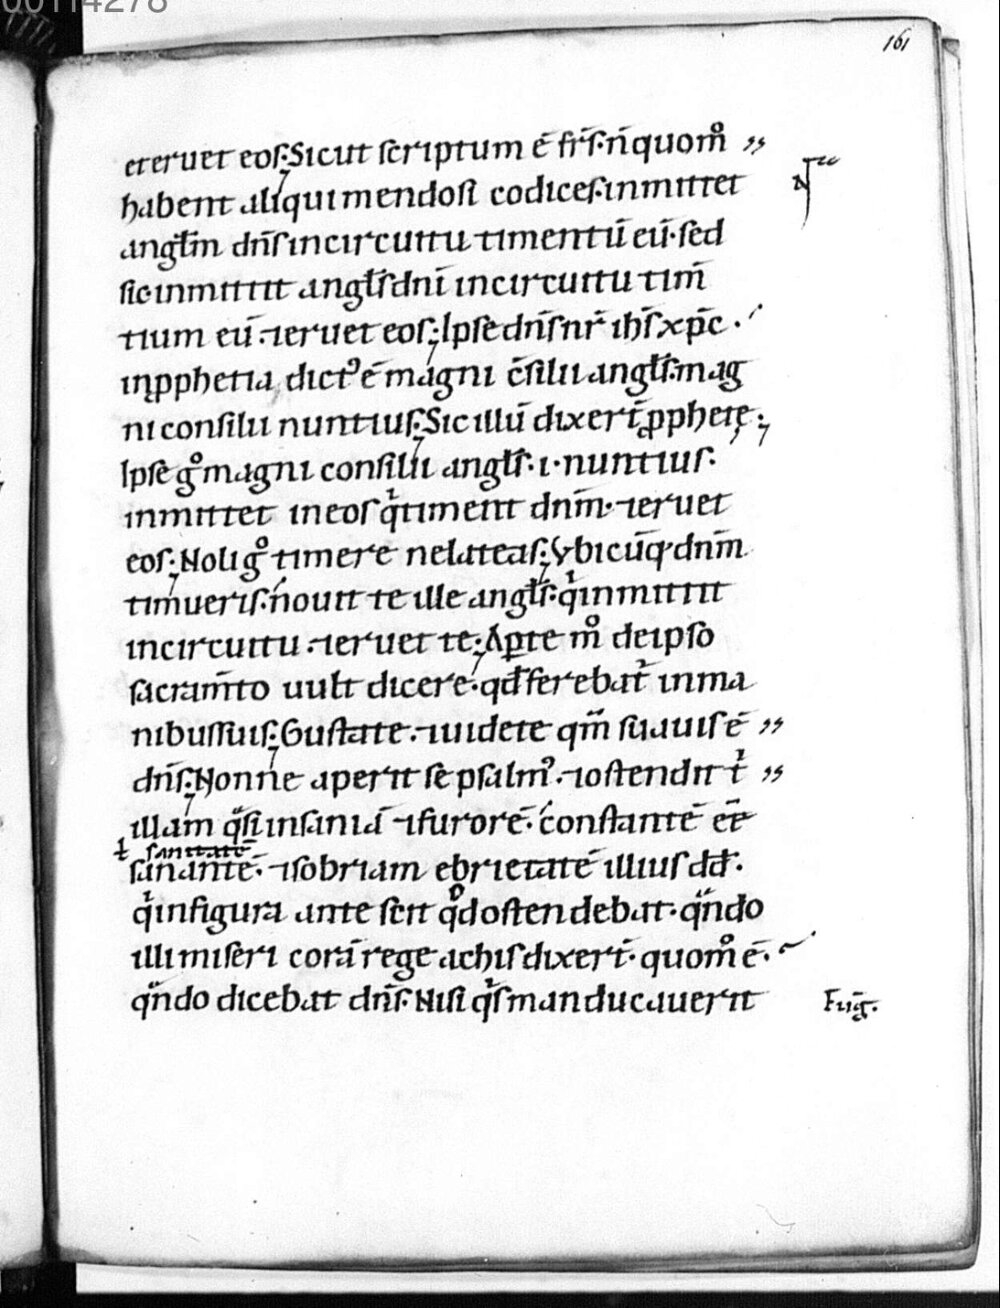 00114278
161
et eruet eos; Sicut scriptum ē fr̄s· n̄ quomͦ
habent aliqui mendosi codices· inmittet
angl̄m dn̄s in circuitu timentiū eū· sed
sic inmittit angl̄s dn̄i in circuitu tim̄
tium eū· ⁊ eruet eos; Ipse dn̄s nr̄ ih̄s xp̄c·
in ꝓphetia dict᾽ ē magni c̄silii angl̄s· mag
ni consilii nuntius; Sic illū dixer̄t ꝓphetę;
Ipse gͦ magni consilii angl̄s· i· nuntius·
inmittet in eos qⁱ timent dn̄m· ⁊ eruet
eos; Noli gͦ timere ne lateas; Vbicūq· dn̄m
timueris· nouit te ille angl̄s· qⁱ inmittit
in circuitu· ⁊ eruet te; Aꝑte mͦ de ipso
sacram̄to uult dicere· qđ ferebat᾽ in ma
nibus suis; Gustate· ⁊ uidete qm̄ suauis ē
dn̄s; Nonne aperit se psalm᾽· ⁊ ostendit t̉
illam q̈si insaniā ⁊ furorē· constantē eē
ł sanitatē
sanantē· ⁊ sobriam ebrietatē illius dd̄·
qⁱ in figura ante scit qͦd ostendebat· qᵃndo
illi miseri corā rege achis dixer̄t· quomͦ ē·
qᵃndo dicebat dn̄s· Nisi qⁱs manducauerit